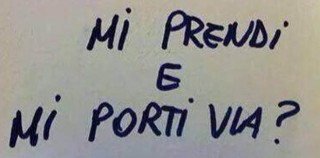 Mi PRENDi
E
Mi PORTi VIA?